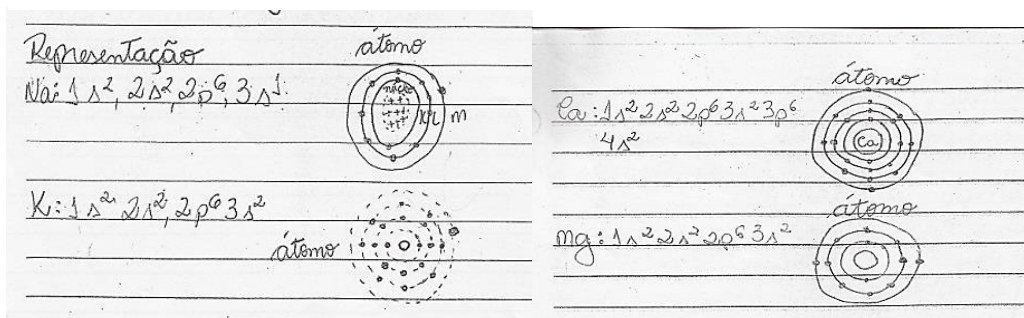 Representação
átomo
Na: 1s², 2s², 2p⁶, 3s¹
núcleo
K L M
K: 1s² 2s², 2p⁶ 3s²
átomo
átomo
Ca: 1s² 2s² 2p⁶ 3s² 3p⁶
4s²
Ca
átomo
Mg: 1s² 2s² 2p⁶ 3s²